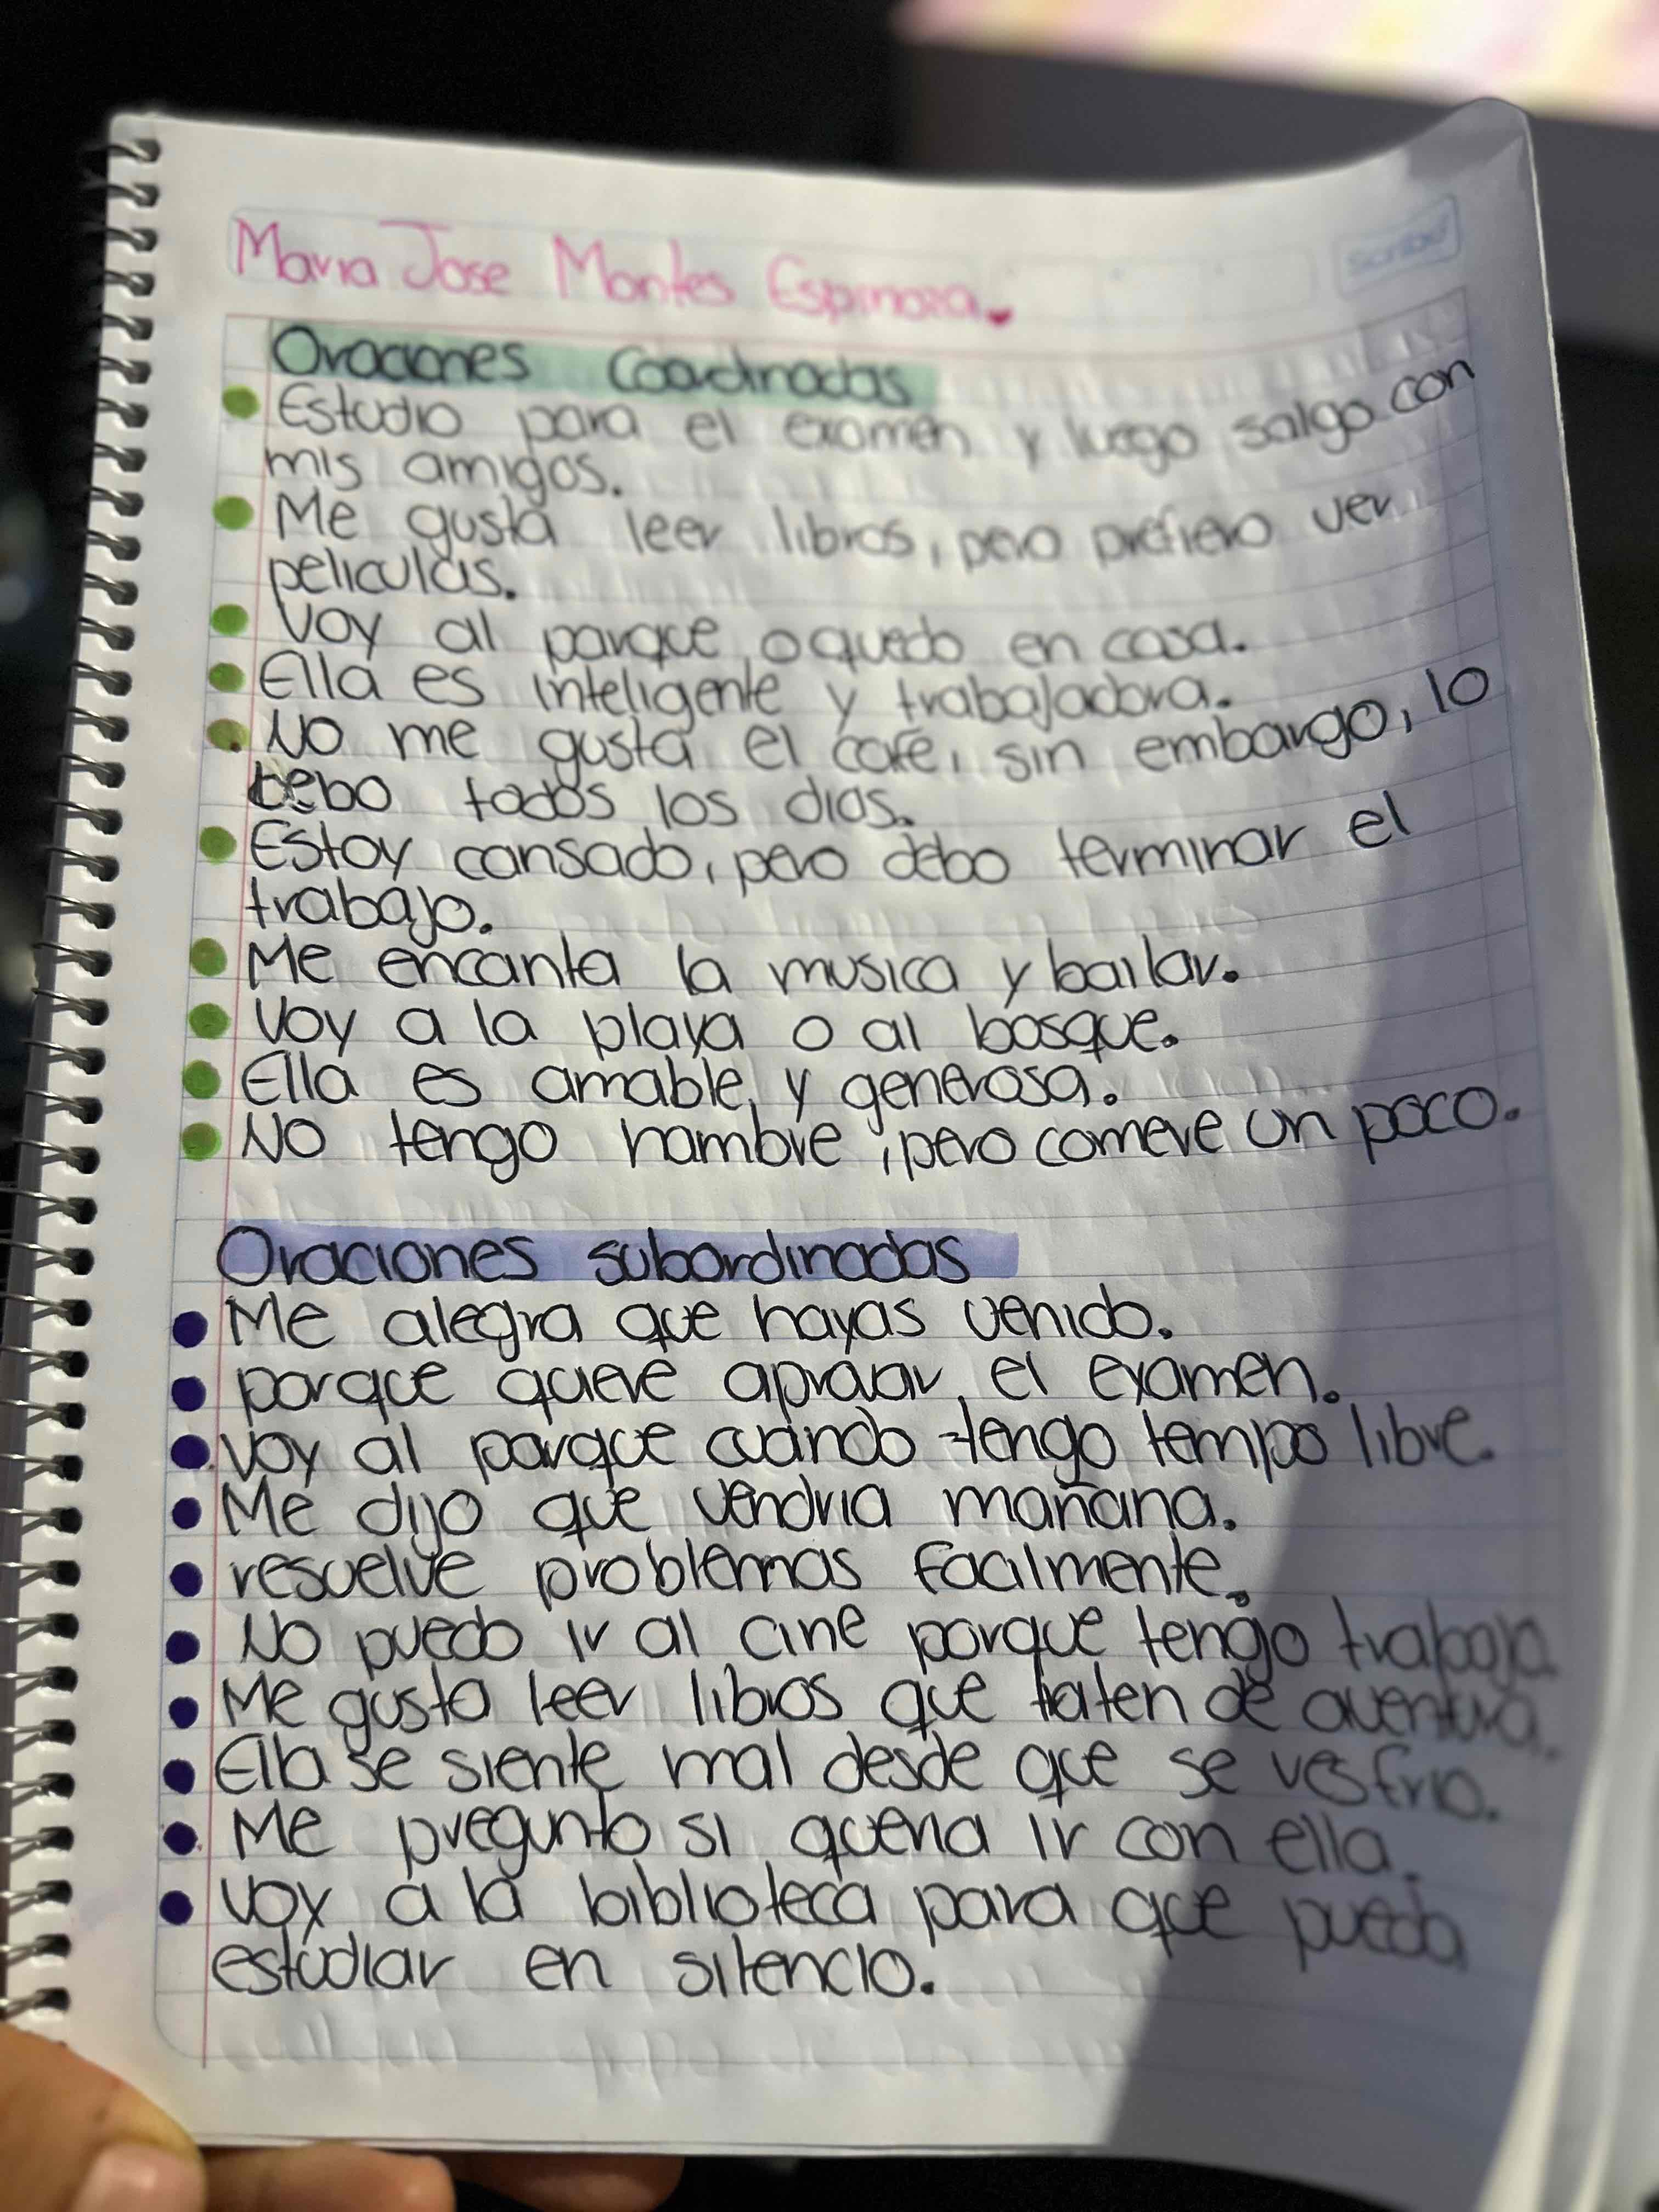 Maria Jose Montes Espinoza.
Scribe
Oraciones Coordinadas
Estudio para el examen y luego salgo con
mis amigos.
Me gusta leer libros, pero prefiero ver
peliculas.
Voy al parque o quedo en casa.
Ella es inteligente y trabajadora.
No me gusta el cafe, sin embargo, lo
bebo todos los dias.
Estoy cansado, pero debo terminar el
trabajo.
Me encanta la musica y bailar.
Voy a la playa o al bosque.
Ella es amable y generosa.
No tengo hambre, pero comere un poco.
Oraciones subordinadas
Me alegra que hayas venido.
porque quiere el examen.
Voy al parque cuando tengo tempo libre.
Me dijo que vendria mañana.
resuelve problemas facilmente.
No puedo ir al cine porque tengo trabajo.
Me gusta leer libros que traten de aventura.
Ella se siente mal desde que se resfrio.
Me pregunto si queria ir con ella.
Voy a la biblioteca para que pueda
estudiar en silencio.